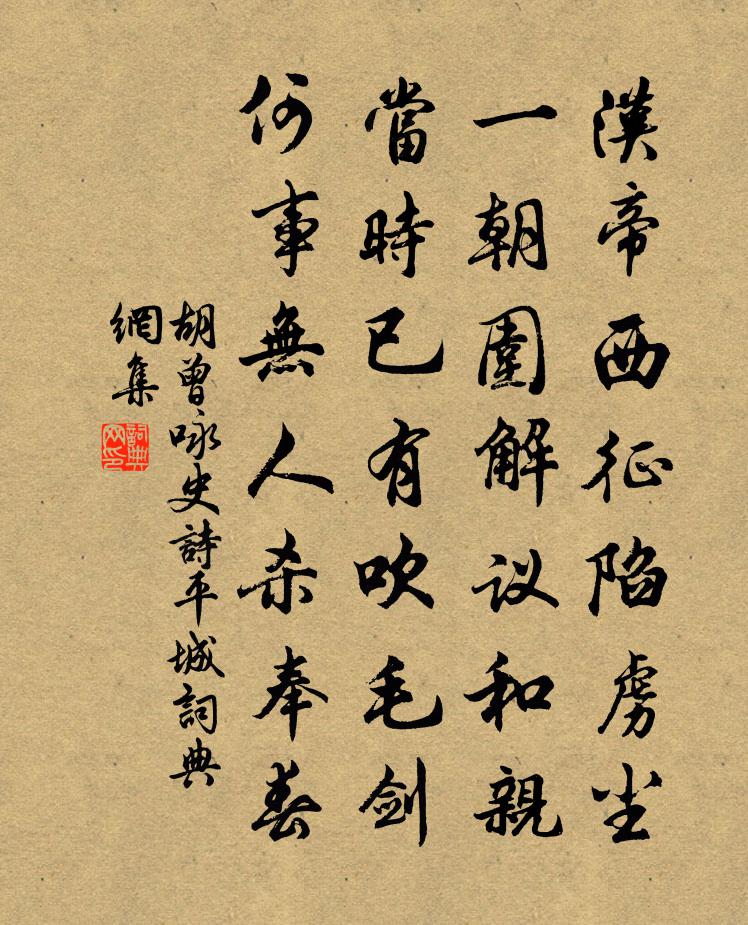 漢帝西征陷虜尘
一朝圍解议和親
當時已有吹毛剑
何事無人杀奉春
胡曾咏史詩平城詞典
網集
詞典網印